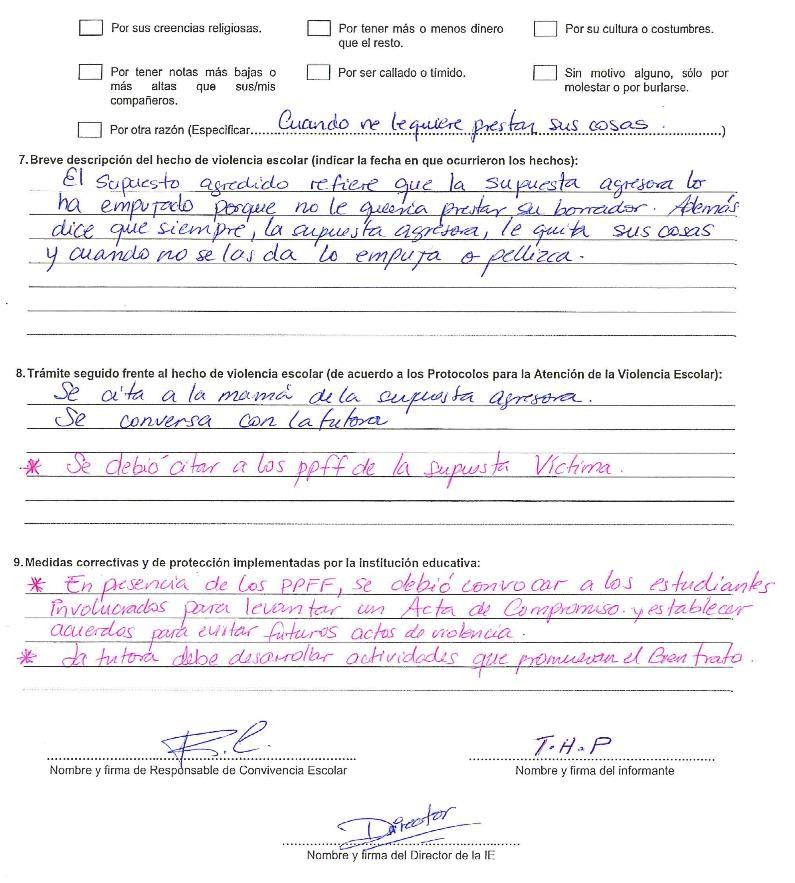 Por sus creencias religiosas.
Por tener más o menos dinero que el resto.
Por su cultura o costumbres.
Por tener notas más bajas o más altas que sus/mis compañeros.
Por ser callado o tímido.
Sin motivo alguno, sólo por molestar o por burlarse.
Por otra razón (Especificar.....Cuando no le quiere prestar sus cosas.............)
7. Breve descripción del hecho de violencia escolar (indicar la fecha en que ocurrieron los hechos):
El supuesto agredido refiere que la supuesta agresora lo
ha empujado porque no le quería prestar su borrador. Además
dice que siempre, la supuesta agresora, le quita sus cosas
y cuando no se las da lo empuja o pellizca.
8. Trámite seguido frente al hecho de violencia escolar (de acuerdo a los Protocolos para la Atención de la Violencia Escolar):
Se cita a la mamá de la supuesta agresora.
Se conversa con la tutora
* Se debió citar a los ppff de la supuesta Víctima.
9. Medidas correctivas y de protección implementadas por la institución educativa:
* En presencia de los PPFF, se debió convocar a los estudiantes
involucrados para levantar un Acta de Compromiso y establecer
acuerdos para evitar futuros actos de violencia.
* La tutora debe desarrollar actividades que promuevan el Buen trato.
R.C.
Nombre y firma de Responsable de Convivencia Escolar
T.H.P
Nombre y firma del informante
Director
Nombre y firma del Director de la IE